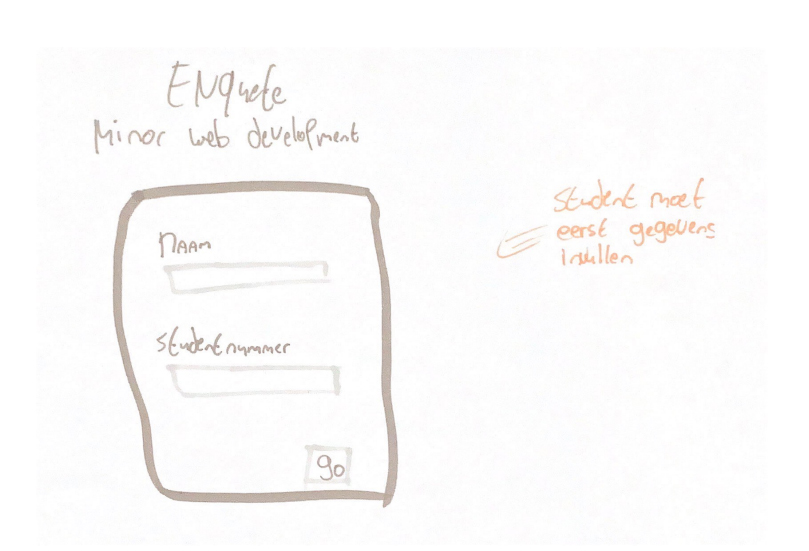 ENquete
Minor web development
Naam
studentnummer
go
Student moet
eerst gegevens
invullen